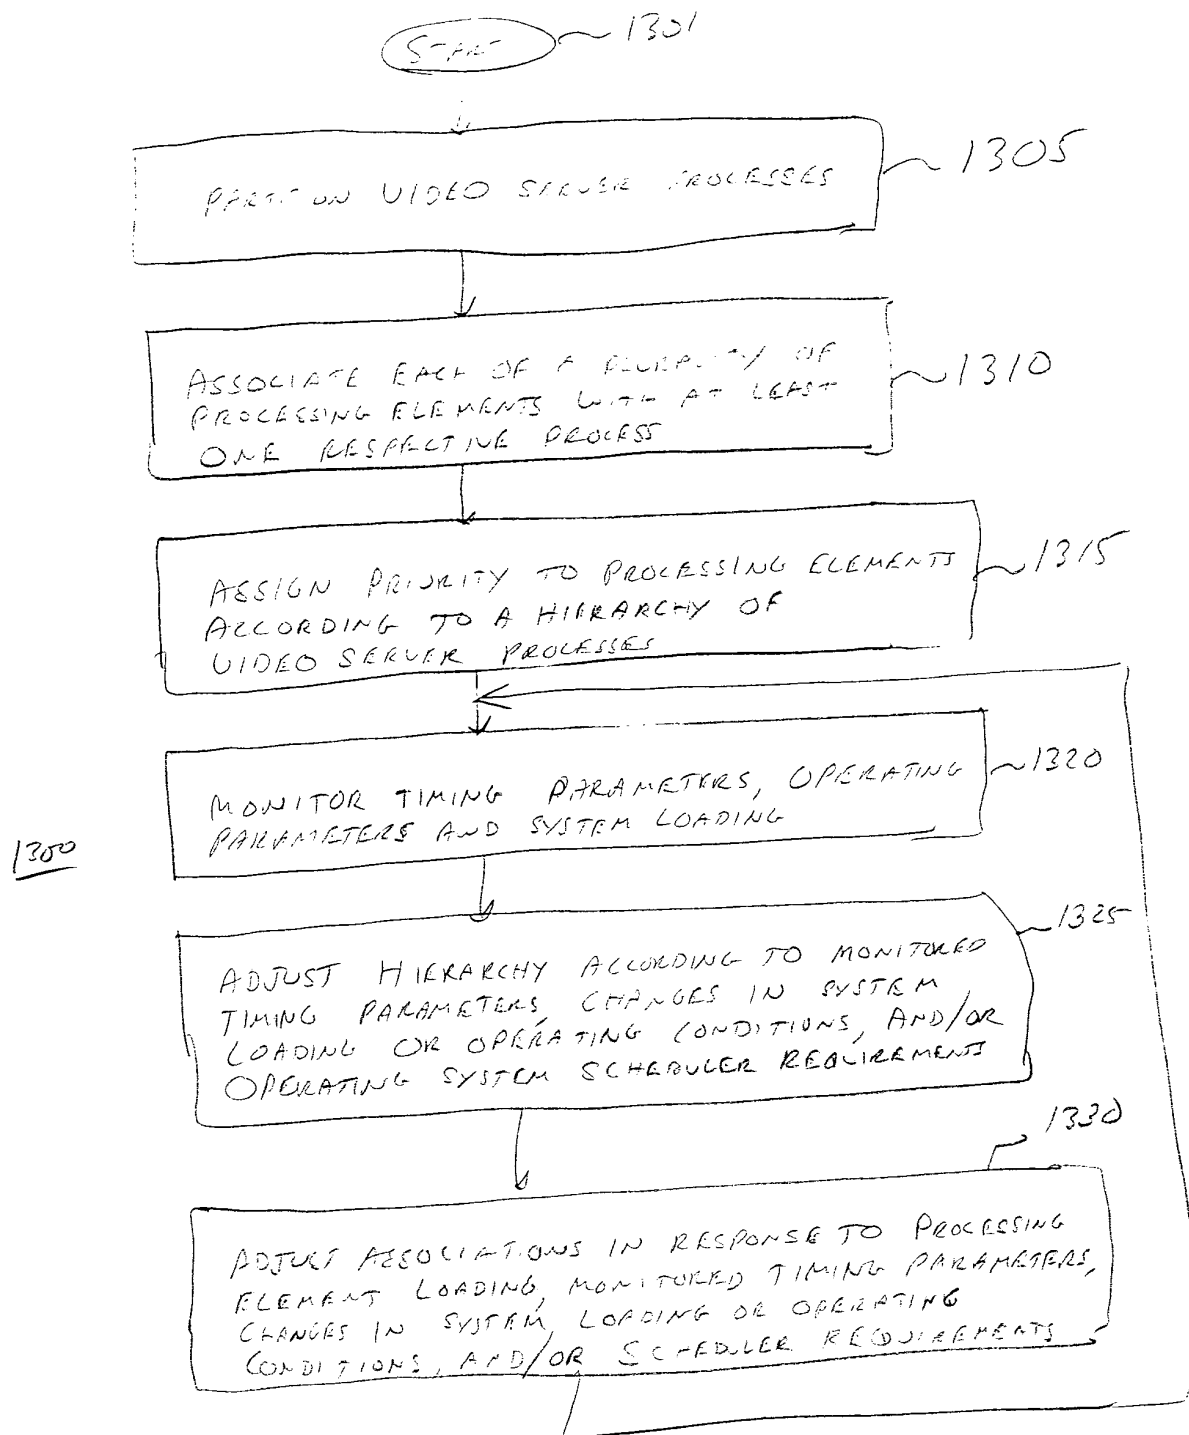 START 1301
PARTITION VIDEO SERVER PROCESSES 1305
ASSOCIATE EACH OF A PLURALITY OF
PROCESSING ELEMENTS WITH AT LEAST
ONE RESPECTIVE PROCESS
1310
ASSIGN PRIORITY TO PROCESSING ELEMENTS
ACCORDING TO A HIERARCHY OF
VIDEO SERVER PROCESSES
1315
MONITOR TIMING PARAMETERS, OPERATING
PARAMETERS AND SYSTEM LOADING
1320
1300
ADJUST HIERARCHY ACCORDING TO MONITORED
TIMING PARAMETERS, CHANGES IN SYSTEM
LOADING OR OPERATING CONDITIONS, AND/OR
OPERATING SYSTEM SCHEDULER REQUIREMENTS
1325
ADJUST ASSOCIATIONS IN RESPONSE TO PROCESSING
ELEMENT LOADING, MONITORED TIMING PARAMETERS,
CHANGES IN SYSTEM LOADING OR OPERATING
CONDITIONS, AND/OR SCHEDULER REQUIREMENTS
1330